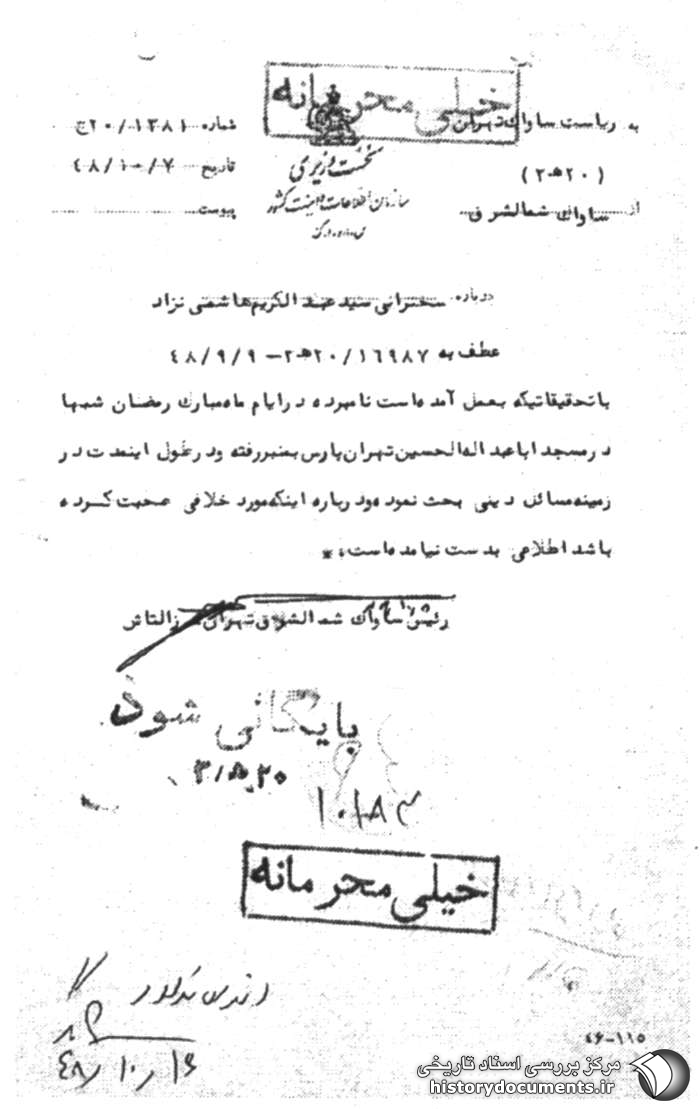 خیلی محرمانه
به ریاست ساواک تهران
شماره ۲۰/۱۳۸۱ج
نخست وزیری
(۲۰هـ۲)
تاریخ ۴۸/۱۰/۷
سازمان اطلاعات و امنیت کشور
از ساواک شمالشرق
پیوست
س.ا.و.ا.ک
درباره سخنرانی سید عبدالکریم هاشمی نژاد
عطف به ۲۰/۱۶۹۸۷هـ۲ – ۴۸/۹/۹
با تحقیقاتیکه بعمل آمده است نامبرده در ایام ماه مبارک رمضان شبها
در مسجد ابا عبداله الحسین تهران پارس بمنبر رفته و در طول اینمدت در
زمینه مسائل دینی بحث نموده و درباره اینکه مورد خلافی صحبت کرده
باشد اطلاعی بدست نیامده است.*
رئیس ساواک شمالشرق تهران
بایگانی شود
۲۰.هـ/۳
خیلی محرمانه
۴۸/۱۰/۱۶
۴۶-۱۱۵
مرکز بررسی اسناد تاریخی
historydocuments.ir